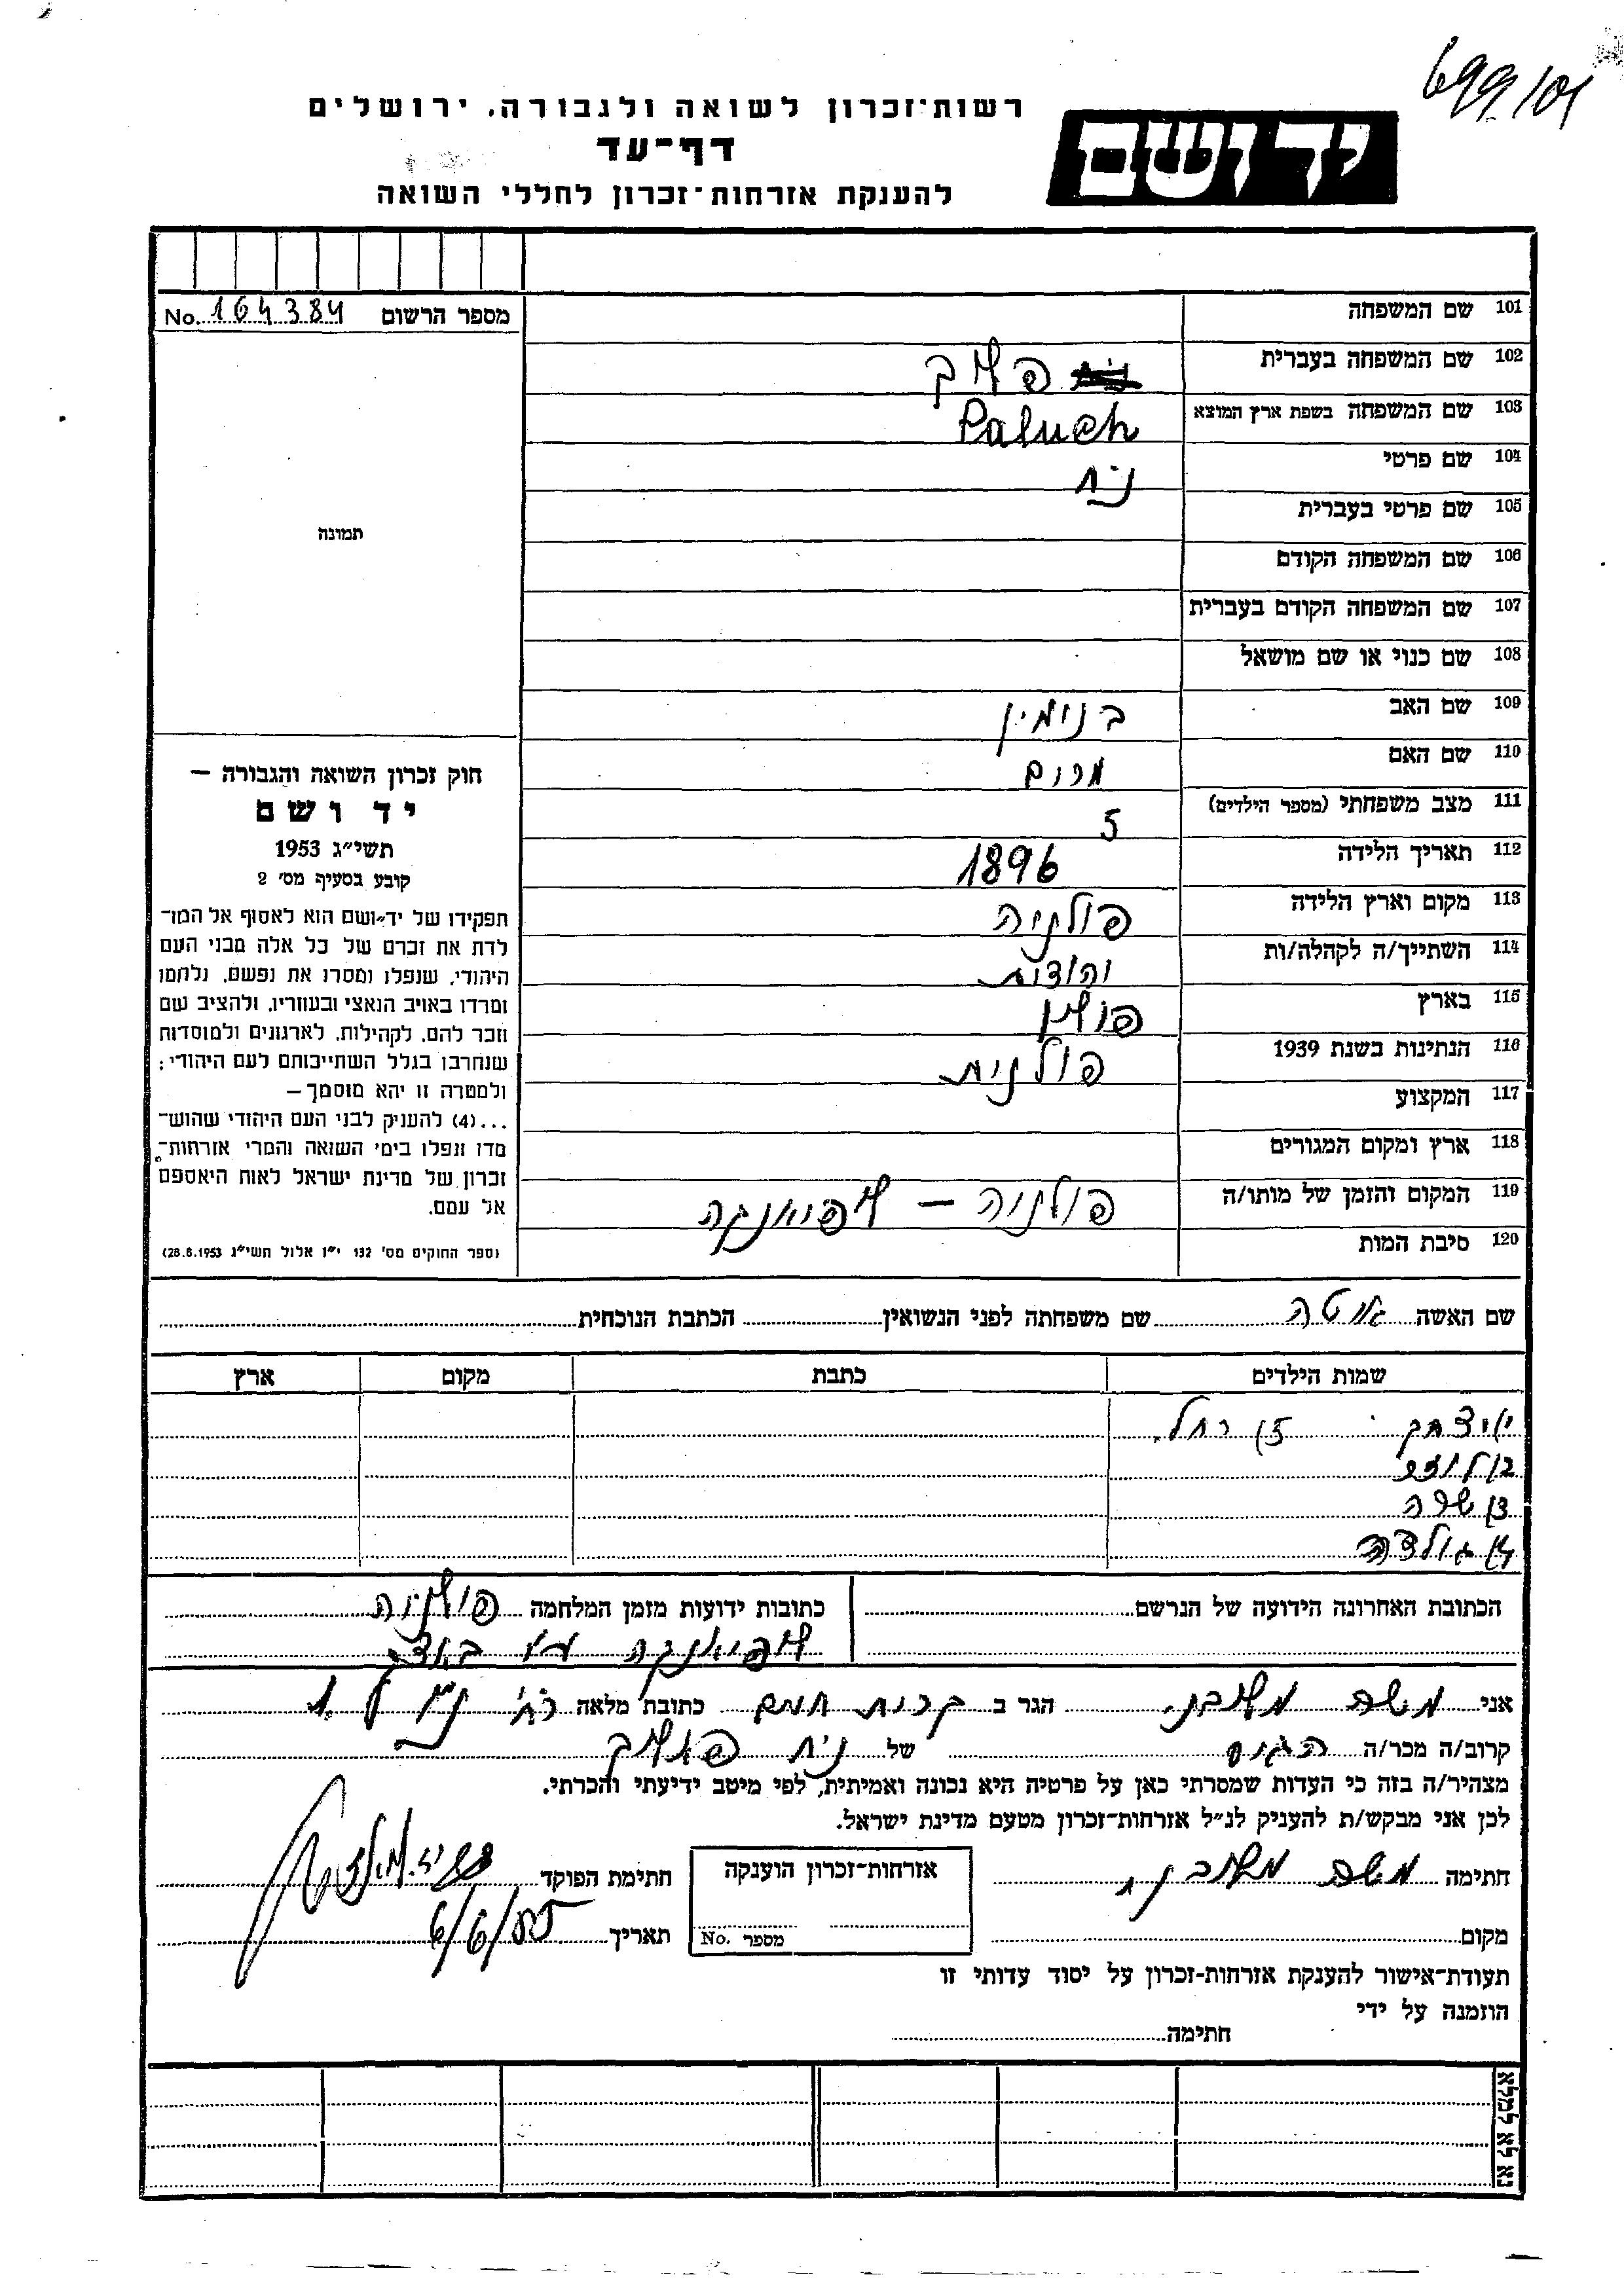 699/101
רשות־זכרון לשואה ולגבורה, ירושלים
דף־עד
להענקת אזרחות־זכרון לחללי השואה
יד ושם
מספר הרשום No. 164384
תמונה
101 שם המשפחה
102 שם המשפחה בעברית
103 שם המשפחה בשפת ארץ המוצא Paluch
104 שם פרטי נח
105 שם פרטי בעברית
106 שם המשפחה הקודם
107 שם המשפחה הקודם בעברית
108 שם כנוי או שם מושאל
109 שם האב בנימין
110 שם האם מרים
111 מצב משפחתי (מספר הילדים) 5
112 תאריך הלידה 1896
113 מקום וארץ הלידה פולניה
114 השתייך/ה לקהלה/ות יהודית
115 בארץ פולין
116 הנתינות בשנת 1939 פולנית
117 המקצוע
118 ארץ ומקום המגורים
119 המקום והזמן של מותו/ה פולניה –
120 סיבת המות
חוק זכרון השואה והגבורה –
יד ושם
תשי״ג 1953
קובע בסעיף מס׳ 2
תפקידו של יד־ושם הוא לאסוף אל המו־
לדת את זכרם של כל אלה מבני העם
היהודי, שנפלו ומסרו את נפשם, נלחמו
ומרדו באויב הנאצי ובעוזריו, ולהציב שם
וזכר להם, לקהילות, לארגונים ולמוסדות
שנחרבו בגלל השתייכותם לעם היהודי;
ולמטרה זו יהא מוסמך –
...(4) להעניק לבני העם היהודי שהוש־
מדו ונפלו בימי השואה והמרי אזרחות־
זכרון של מדינת ישראל לאות היאספם
אל עמם.
(ספר החוקים מס׳ 132 י״ז אלול תשי״ג 28.8.1953)
שם האשה שם משפחתה לפני הנשואין הכתבת הנוכחית
שמות הילדים כתבת מקום ארץ
רחל
שרה
גולדה
הכתובת האחרונה הידועה של הנרשם
כתובות ידועות מזמן המלחמה פולניה
אני משה הגר ב כתובת מלאה
קרוב/ה מכר/ה של נח פלוך
מצהיר/ה בזה כי העדות שמסרתי כאן על פרטיה היא נכונה ואמיתית, לפי מיטב ידיעתי והכרתי.
לכן אני מבקש/ת להעניק לנ״ל אזרחות־זכרון מטעם מדינת ישראל.
חתימה משה
אזרחות־זכרון הוענקה
מספר No.
חתימת הפוקד
מקום
תאריך 6/6/85
תעודת־אישור להענקת אזרחות־זכרון על יסוד עדותי זו
הוזמנה על ידי
חתימה
נא לא למלא